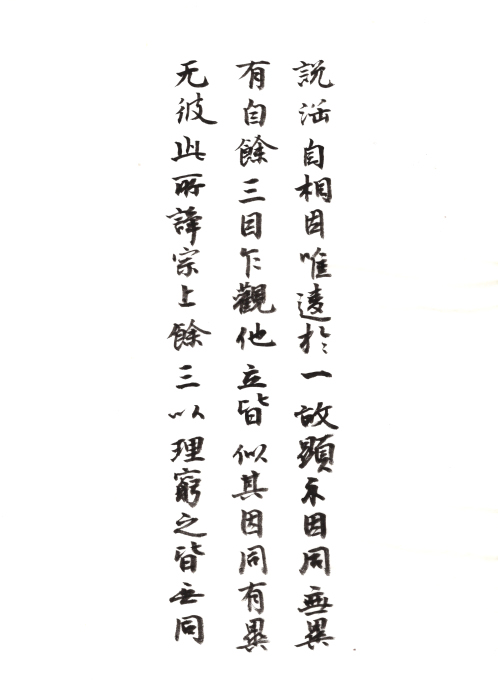 説法自相因唯違於一故顯示因同無異
有自餘三因乍觀他立皆似其因同有異
无彼此所諍宗上餘三以理窮之皆無同